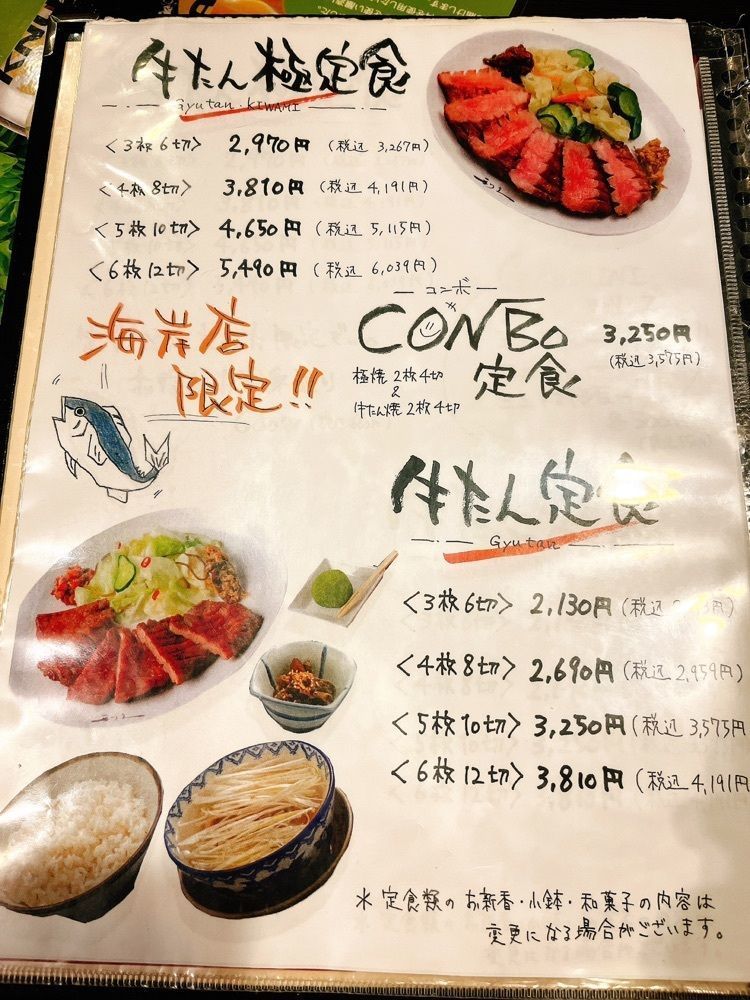 牛たん極定食
Gyutan・KIWAMI
〈3枚6切〉 2,970円 (税込 3,267円)
〈4枚8切〉 3,810円 (税込 4,191円)
〈5枚10切〉 4,650円 (税込 5,115円)
〈6枚12切〉 5,490円 (税込 6,039円)
海岸店
限定!!
コンボ
CONBo
定食
3,250円
(税込 3,575円)
極焼 2枚4切
&
牛たん焼 2枚4切
牛たん定食
Gyutan
〈3枚6切〉 2,130円 (税込
〈4枚8切〉 2,690円 (税込 2,959円)
〈5枚10切〉 3,250円 (税込 3,575円
〈6枚12切〉 3,810円 (税込 4,191円
＊定食類のお新香・小鉢・和菓子の内容は
変更になる場合がございます。